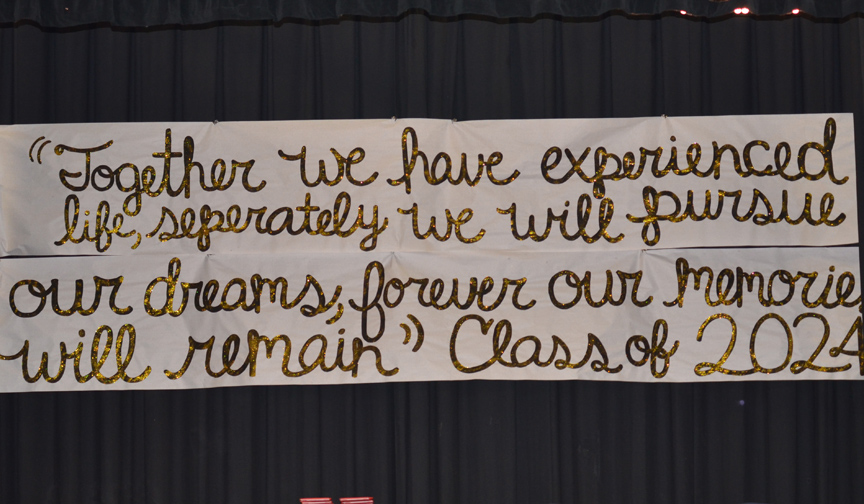 “Together we have experienced
life, seperately we will pursue
our dreams, forever our memorie
will remain” Class of 2024